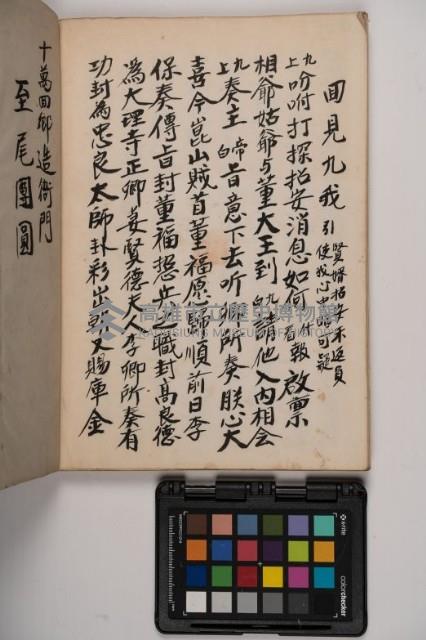 回見九我引 賢婿招安未返員
使我心中好可疑
九上吩咐打探招安消息如何 報啟禀
相爺姑爺与董大王到 九白請他入內相会
九上奏主 帝白旨意下去听卿所奏朕心大
喜今崑山賊首董福愿歸順前日李
保奏傳旨封董福總兵職封高良德
為大理寺正卿姜賢德夫人李卿所奏有
功封為忠良太師卦彩出 又賜庫金
十萬回鄉造衙門
至尾團圓
高雄市立歷史博物館
KAOHSIUNG MUSEUM OF HISTORY
x-rite
colorchecker